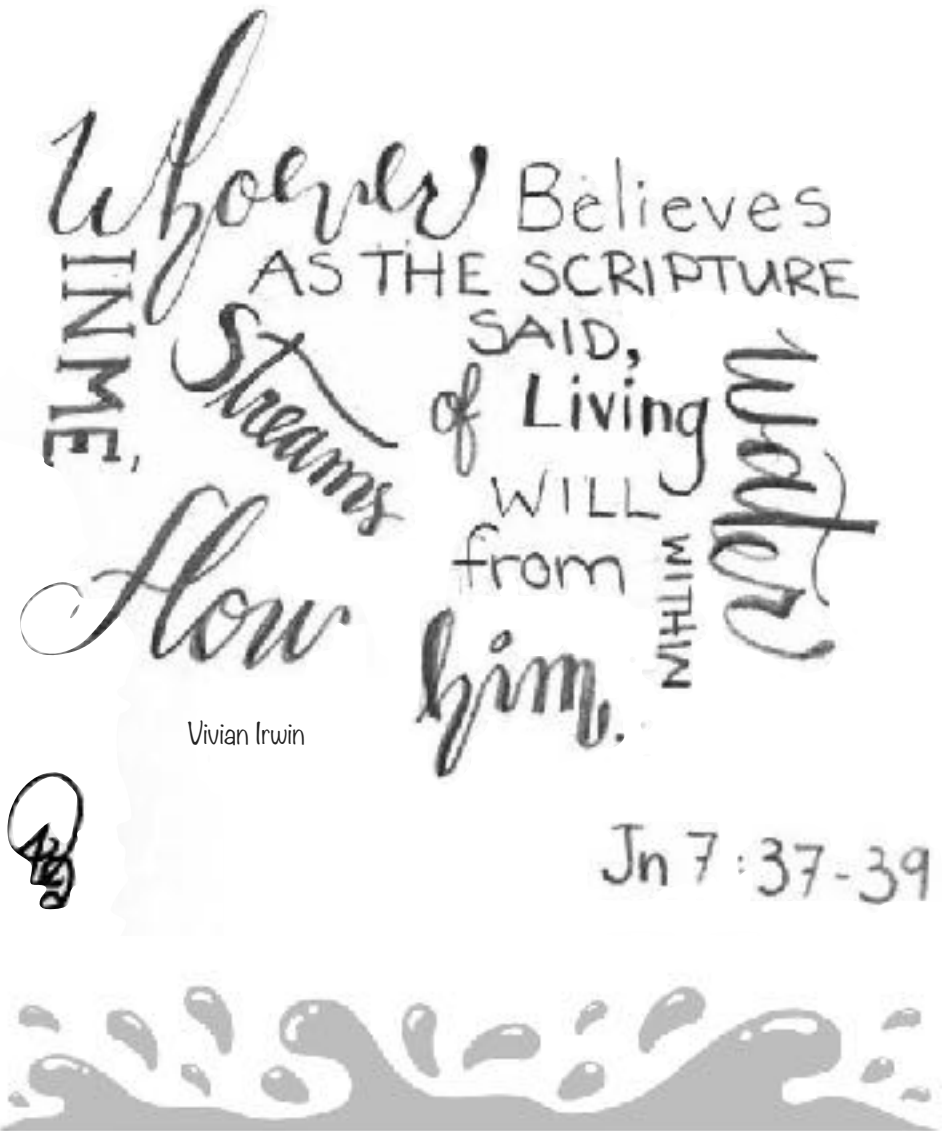 Whoever Believes
IN ME,
AS THE SCRIPTURE
SAID,
Streams
of Living
Water
WILL
Flow
from
WITHIN
him.
Vivian Irwin
Jn 7:37-39